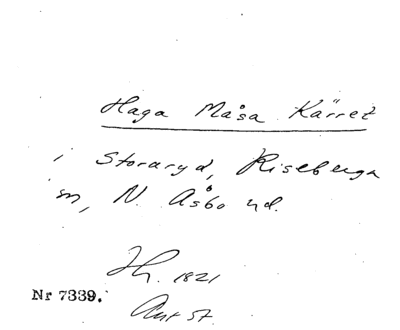 Haga Måsa Kärret
i Storaryd, Riseberga
sn, N. Åsbo hd.
Jh. 1821
Nr 7339.
Ant 57